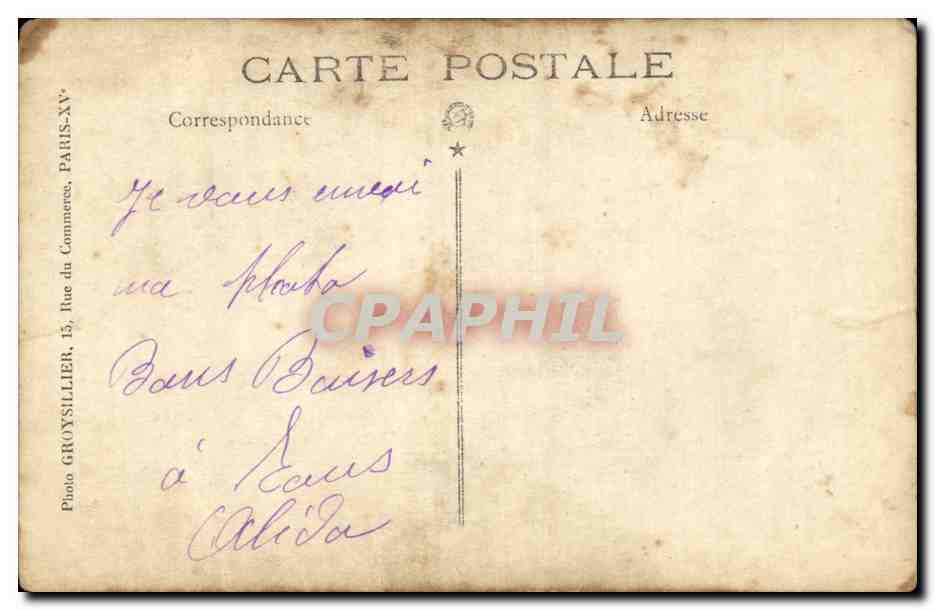 CARTE POSTALE
Correspondance
Adresse
Photo GROYSILLIER, 15, Rue du Commerce, PARIS-XVe
Je vous envoi
ma photo
Bons Baisers
à Tous
Alida
CPAPHIL